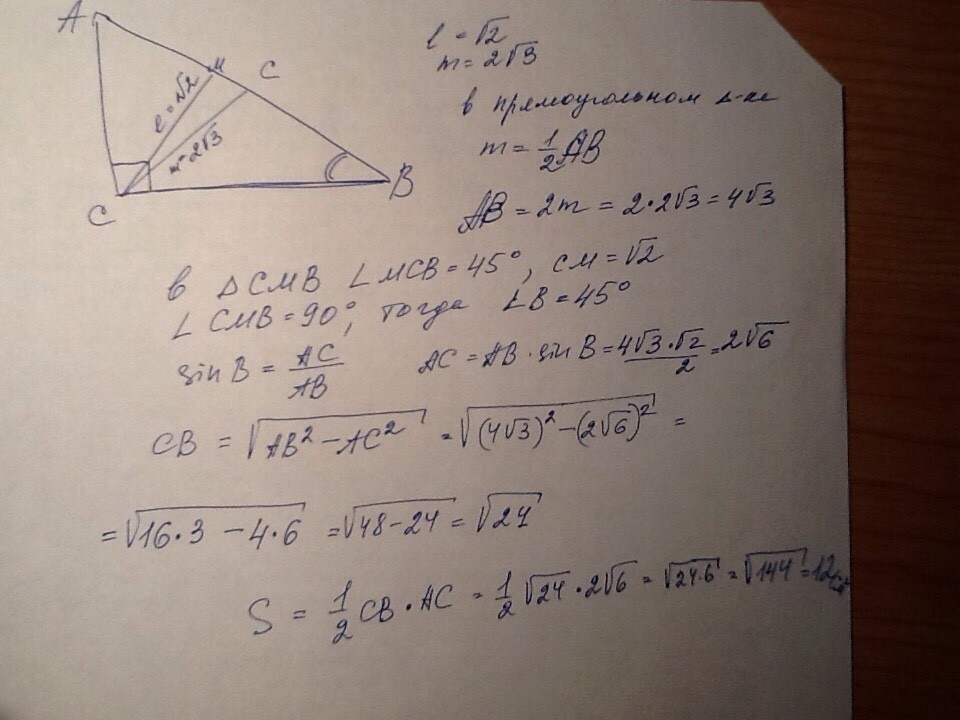 A
M
C
l = √2
m = 2√3
C
B
l = √2
m = 2√3
в прямоугольном Δ-ке
m = 1/2 AB
AB = 2m = 2·2√3 = 4√3
в Δ CMB ∠ MCB = 45°, CM = √2
∠ CMB = 90°, тогда ∠B = 45°
sin B = AC/AB AC = AB · sin B = 4√3·√2/2 = 2√6
CB = √(AB² − AC²) = √((4√3)² − (2√6)²) =
= √(16·3 − 4·6) = √(48−24) = √24
S = 1/2 CB · AC = 1/2 √24 · 2√6 = √(24·6) = √144 = 12